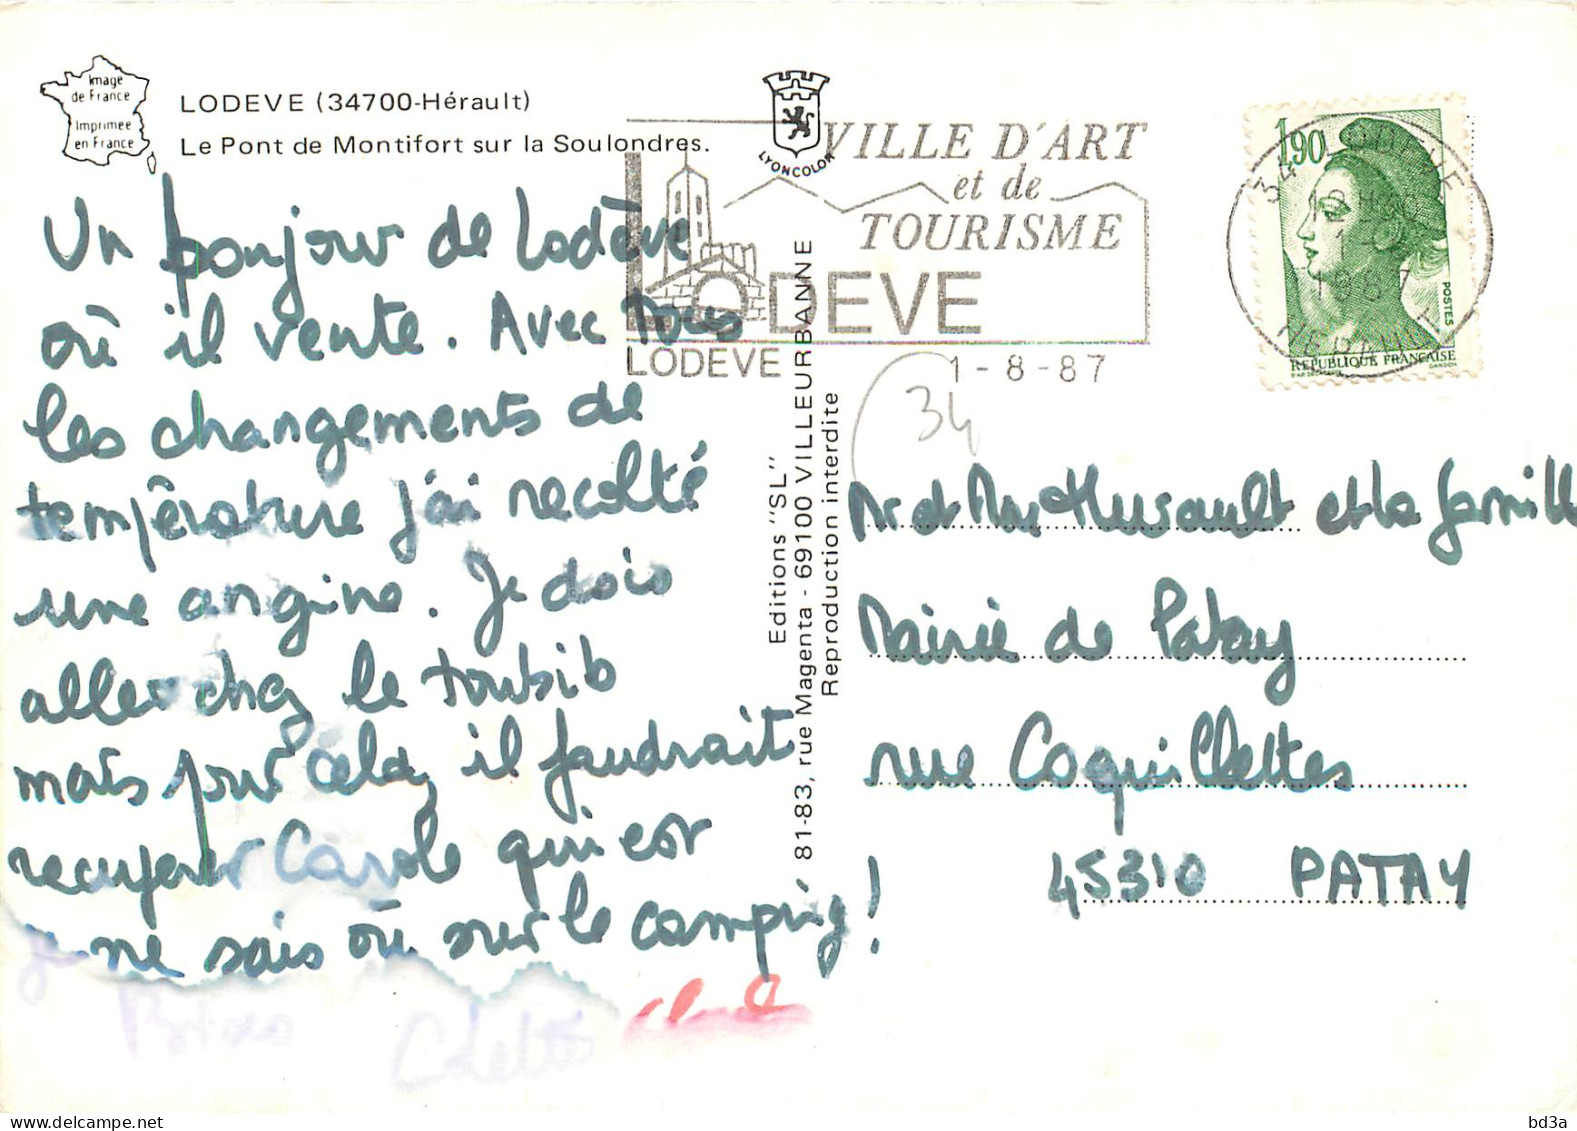 Image
de France
Imprimée
en France
LODEVE (34700-Hérault)
Le Pont de Montifort sur la Soulondres.
LYONCOLOR
VILLE D'ART
et de
TOURISME
LODEVE
LODEVE
1-8-87
1,90
POSTES
REPUBLIQUE FRANÇAISE
GANDON
34
1987
HERAULT
34
Un bonjour de Lodève
où il vente. Avec tous
les changements de
température j'ai recolté
une angine. Je dois
aller chez le toubib
mais pour cela, il faudrait
recuperer Carole qui est
je ne sais où sur le camping!
Editions "SL"
81-83, rue Magenta - 69100 VILLEURBANNE
Reproduction interdite
Mr et Mme Hurault et la famille
Mairie de Patay
rue Coquillettes
45310 PATAY
www.delcampe.net
bd3a